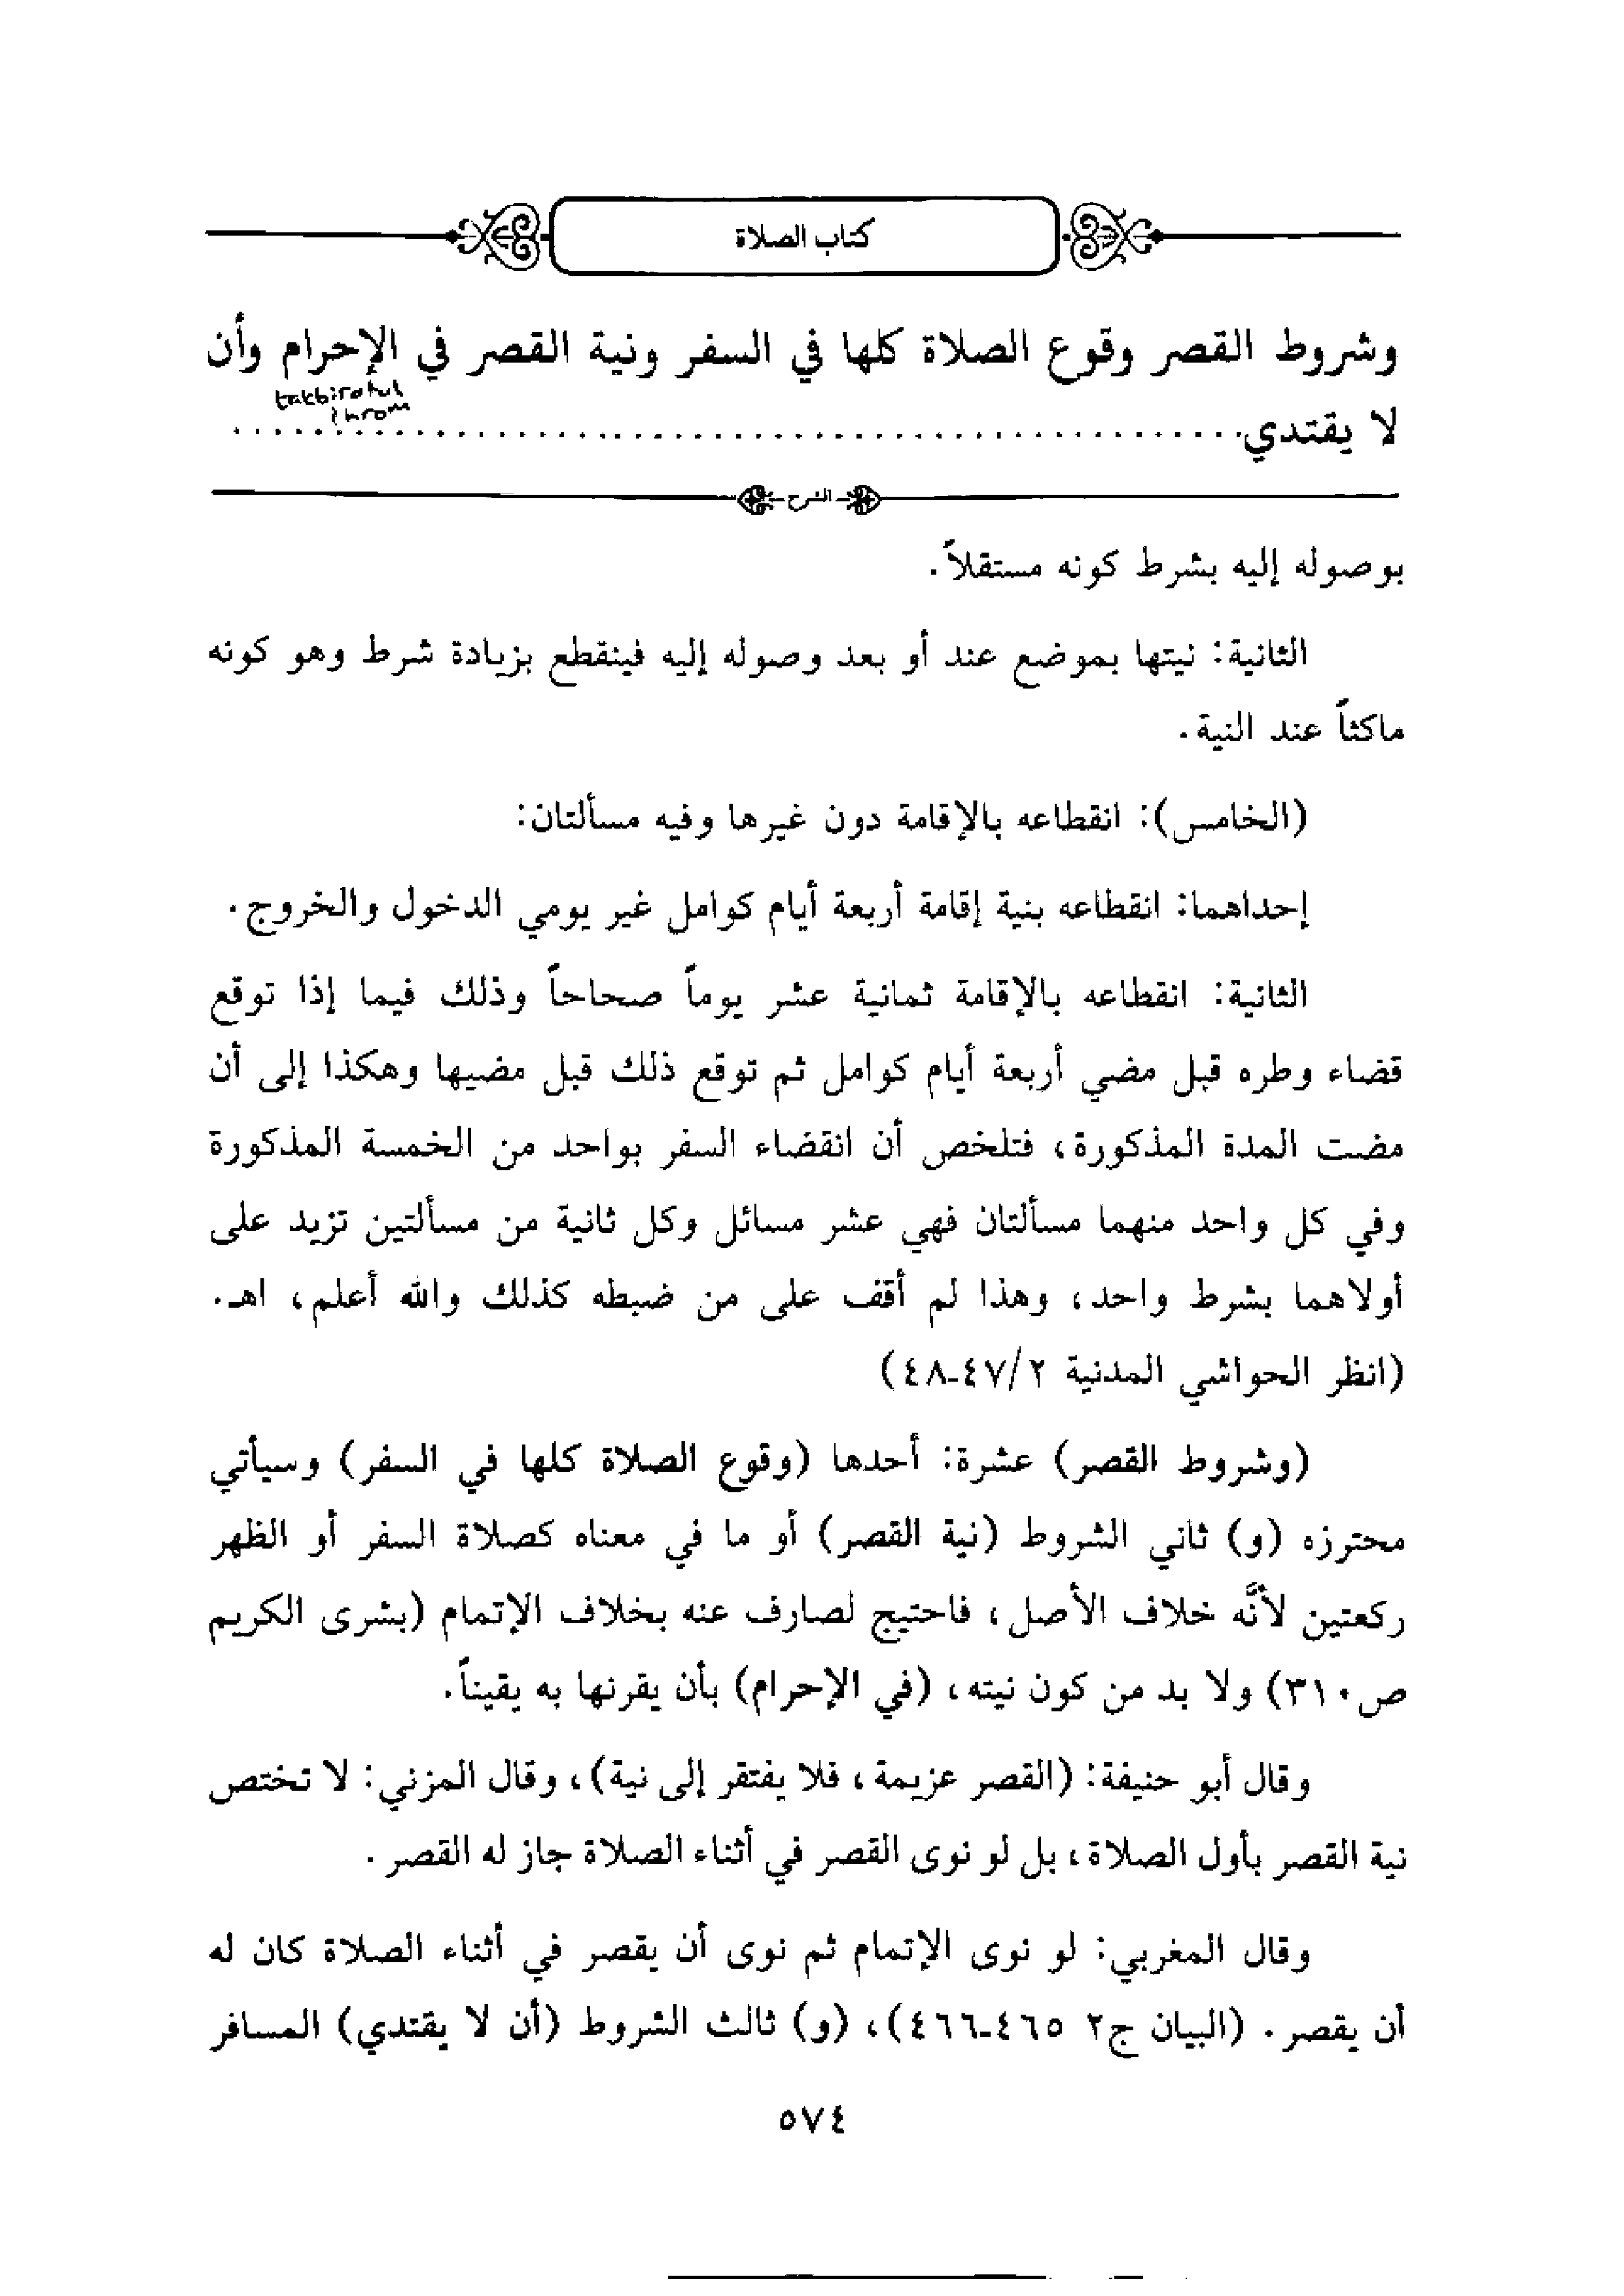 كتاب الصلاة
وشروط القصر وقوع الصلاة كلها في السفر ونية القصر في الإحرام وأن
takbiratul
ihrom
لا يقتدي..................................................
الشرح
بوصوله إليه بشرط كونه مستقلاً.
الثانية: نيتها بموضع عند أو بعد وصوله إليه فينقطع بزيادة شرط وهو كونه
ماكثاً عند النية.
(الخامس): انقطاعه بالإقامة دون غيرها وفيه مسألتان:
إحداهما: انقطاعه بنية إقامة أربعة أيام كوامل غير يومي الدخول والخروج.
الثانية: انقطاعه بالإقامة ثمانية عشر يوماً صحاحاً وذلك فيما إذا توقع
قضاء وطره قبل مضي أربعة أيام كوامل ثم توقع ذلك قبل مضيها وهكذا إلى أن
مضت المدة المذكورة، فتلخص أن انقضاء السفر بواحد من الخمسة المذكورة
وفي كل واحد منهما مسألتان فهي عشر مسائل وكل ثانية من مسألتين تزيد على
أولاهما بشرط واحد، وهذا لم أقف على من ضبطه كذلك والله أعلم، اهـ.
(انظر الحواشي المدنية ٢/٤٧-٤٨)
(وشروط القصر) عشرة: أحدها (وقوع الصلاة كلها في السفر) وسيأتي
محترزه (و) ثاني الشروط (نية القصر) أو ما في معناه كصلاة السفر أو الظهر
ركعتين لأنَّه خلاف الأصل، فاحتيج لصارف عنه بخلاف الإتمام (بشرى الكريم
ص٣١٠) ولا بد من كون نيته، (في الإحرام) بأن يقرنها به يقيناً.
وقال أبو حنيفة: (القصر عزيمة، فلا يفتقر إلى نية)، وقال المزني: لا تختص
نية القصر بأول الصلاة، بل لو نوى القصر في أثناء الصلاة جاز له القصر.
وقال المغربي: لو نوى الإتمام ثم نوى أن يقصر في أثناء الصلاة كان له
أن يقصر. (البيان ج٢ ٤٦٥-٤٦٦)، (و) ثالث الشروط (أن لا يقتدي) المسافر
٥٧٤